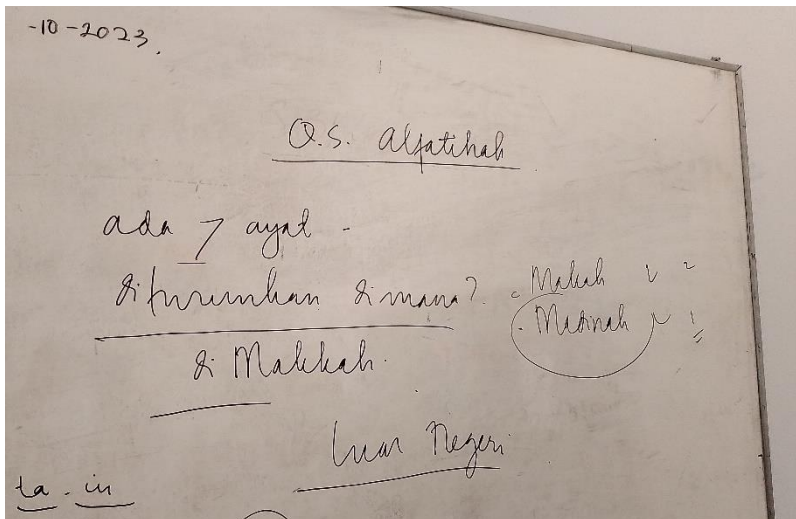 -10-2023.
Q.S. Alfatihah
ada 7 ayat -
diturunkan dimana?
. Makah
. Madinah
di Makkah.
luar Negeri
ta - in